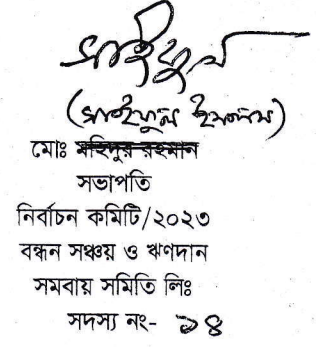 সাইফুল
(সাইফুল ইসলাম)
মোঃ মহিদুর রহমান
সভাপতি
নির্বাচন কমিটি/২০২৩
বন্ধন সঞ্চয় ও ঋণদান
সমবায় সমিতি লিঃ
সদস্য নং- ১৪